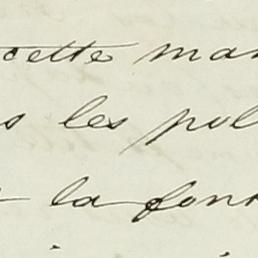 cette man
s les pol
la font